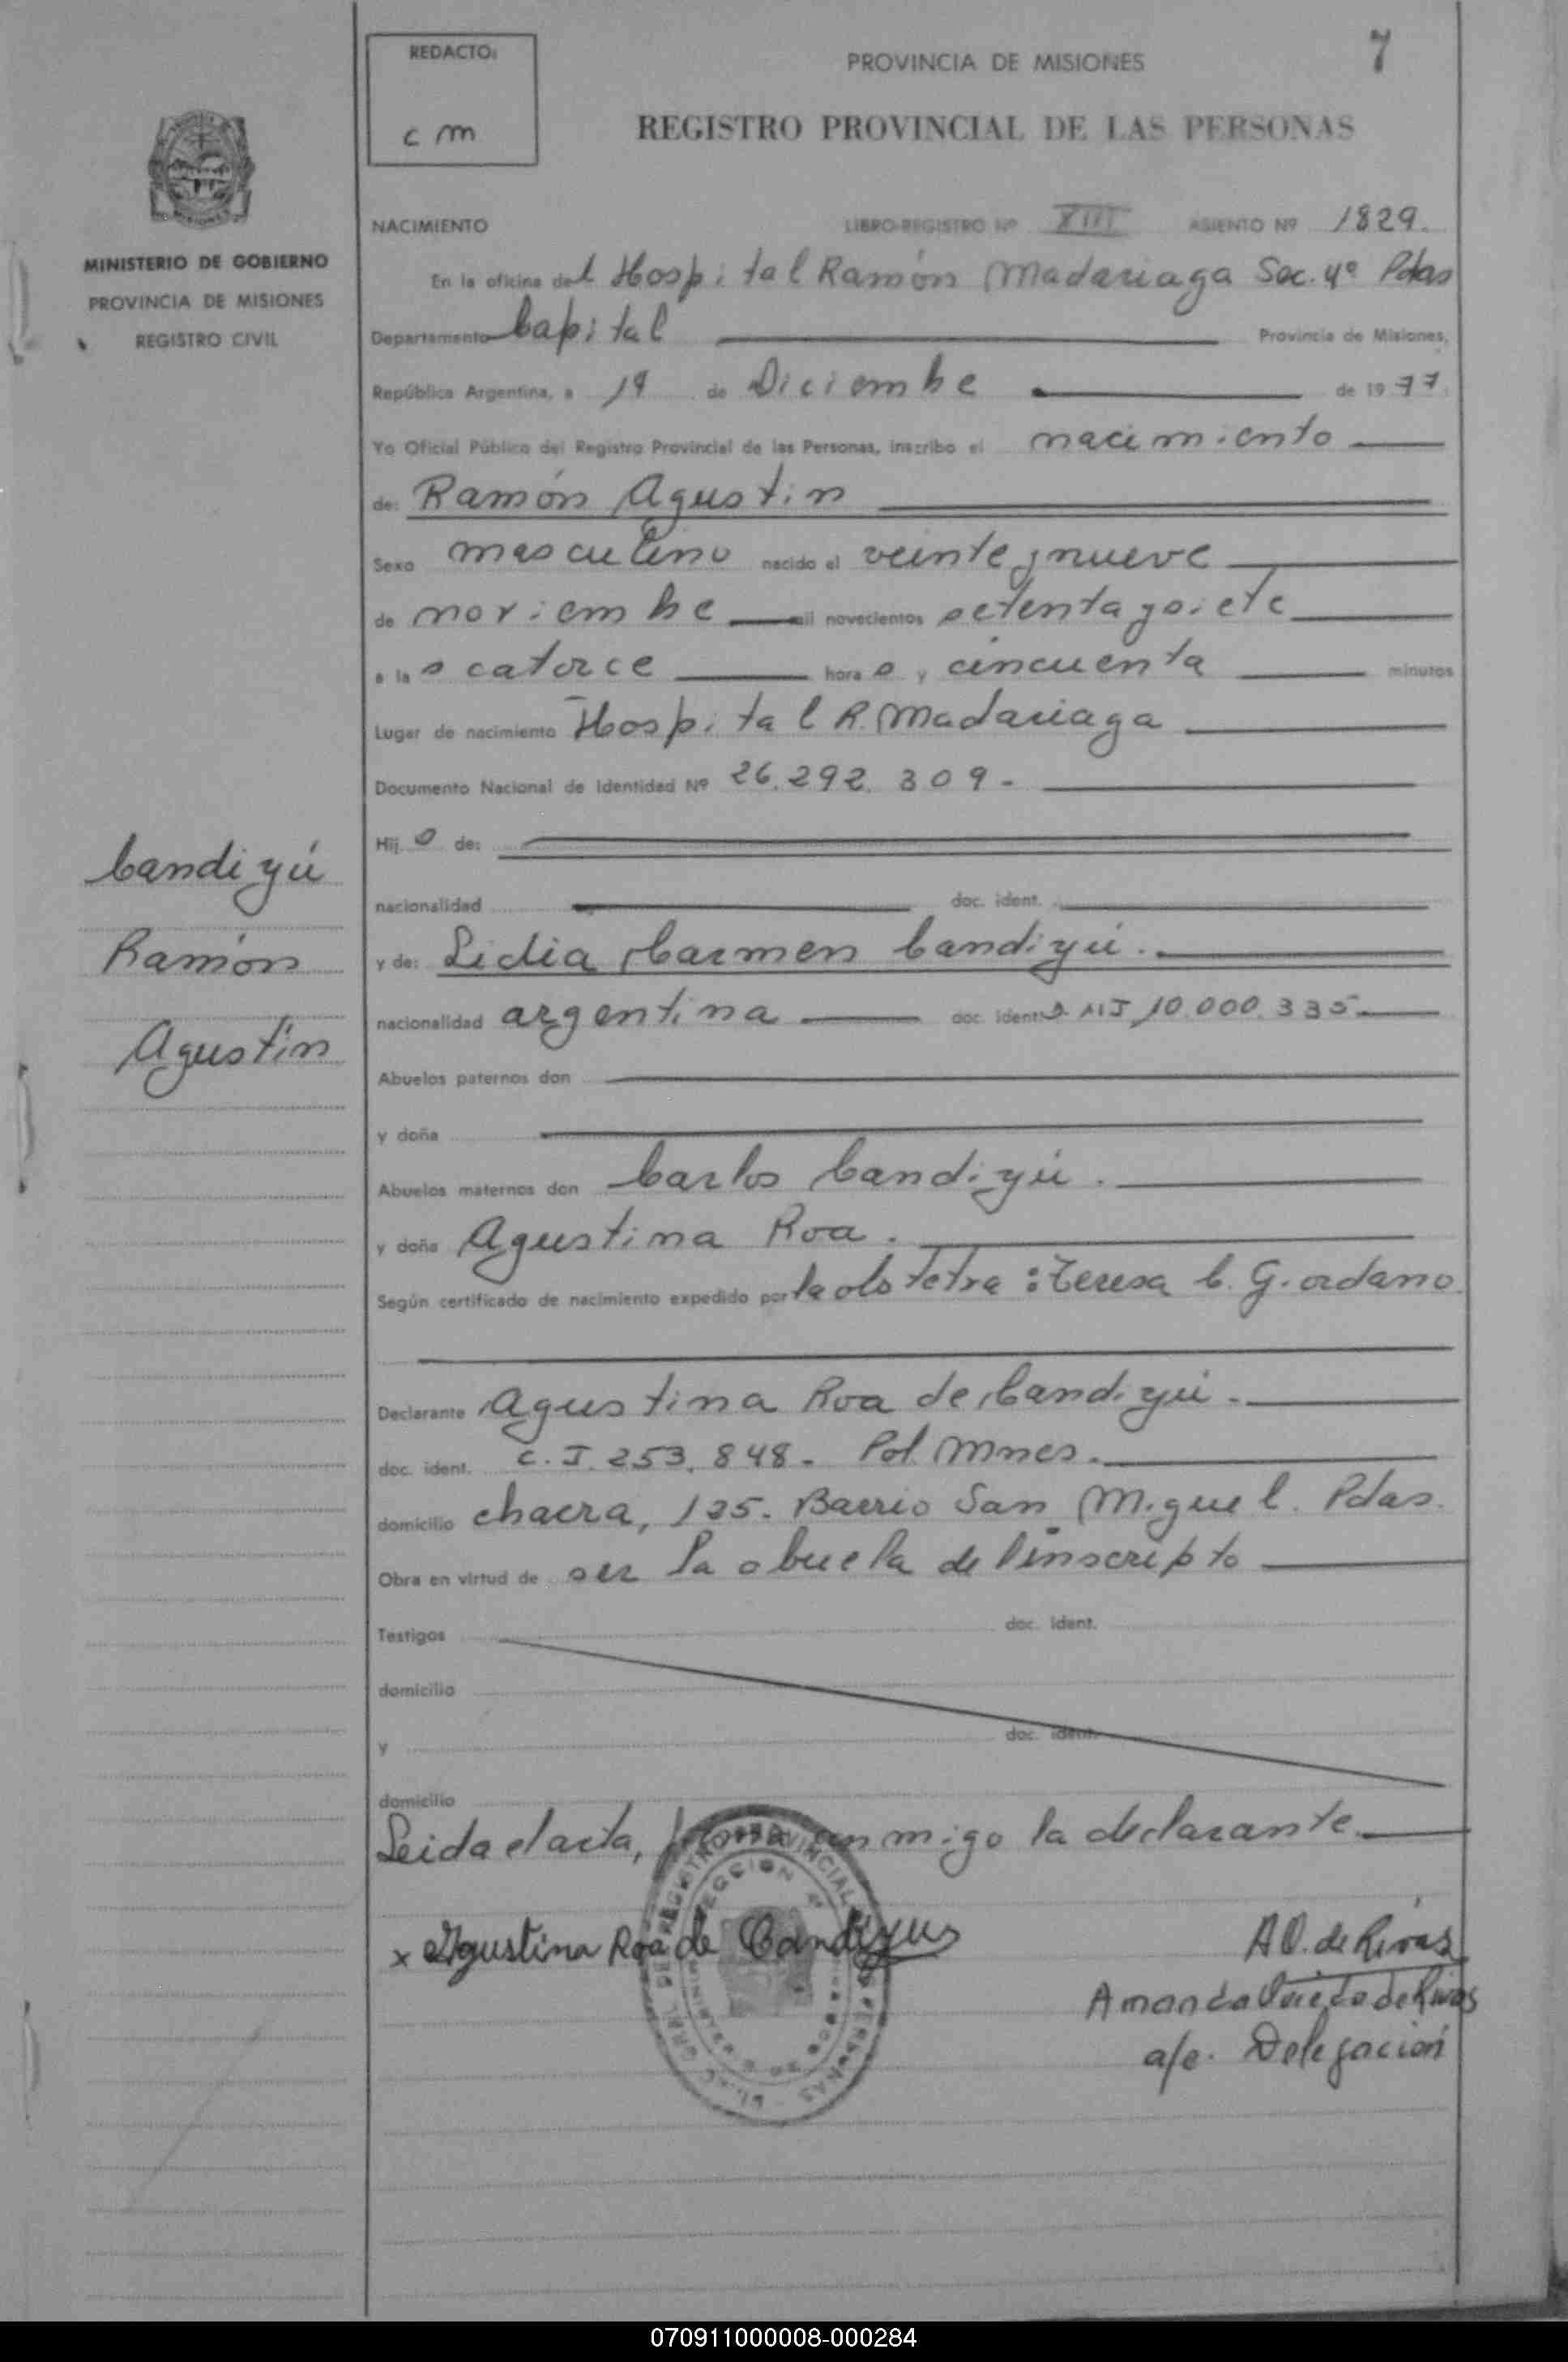 7
REDACTO:
c m
PROVINCIA DE MISIONES
REGISTRO PROVINCIAL DE LAS PERSONAS
MINISTERIO DE GOBIERNO
PROVINCIA DE MISIONES
REGISTRO CIVIL
NACIMIENTO LIBRO-REGISTRO Nº XIII ASIENTO Nº 1829.
En la oficina del Hospital Ramón Madariaga Sec. 4ª Pdas
Departamento Capital Provincia de Misiones,
República Argentina, a 19 de Diciembre de 1977
Yo Oficial Público del Registro Provincial de las Personas, inscribo el nacimiento
de: Ramón Agustin
Sexo masculino nacido el veinte y nueve
de noviembre mil novecientos setenta y siete
a las catorce horas y cincuenta minutos
Lugar de nacimiento Hospital R. Madariaga
Documento Nacional de Identidad Nº 26.292.309-
Hijo de:
nacionalidad doc. ident.
y de: Lidia Carmen Candiyú.
nacionalidad argentina doc. ident. 10.000.335
Abuelos paternos don
y doña
Abuelos maternos don Carlos Candiyú.
y doña Agustina Roa.
Según certificado de nacimiento expedido por la obstetra: Teresa C. Giordano.
Declarante Agustina Roa de Candiyú.
doc. ident. C.I. 253.848. Pol. Mnes.
domicilio chacra, 125. Barrio San Miguel. Pdas.
Obra en virtud de ser la abuela del inscripto
Testigos doc. ident.
domicilio
y doc. ident.
domicilio
Leida el acta, conmigo la declarante.
x Agustina Roa de Candiyus
A O. de Rivas
Amanda Oviedo de Rivas
a/c. Delegación
Candiyú
Ramón
Agustín
070911000008-000284